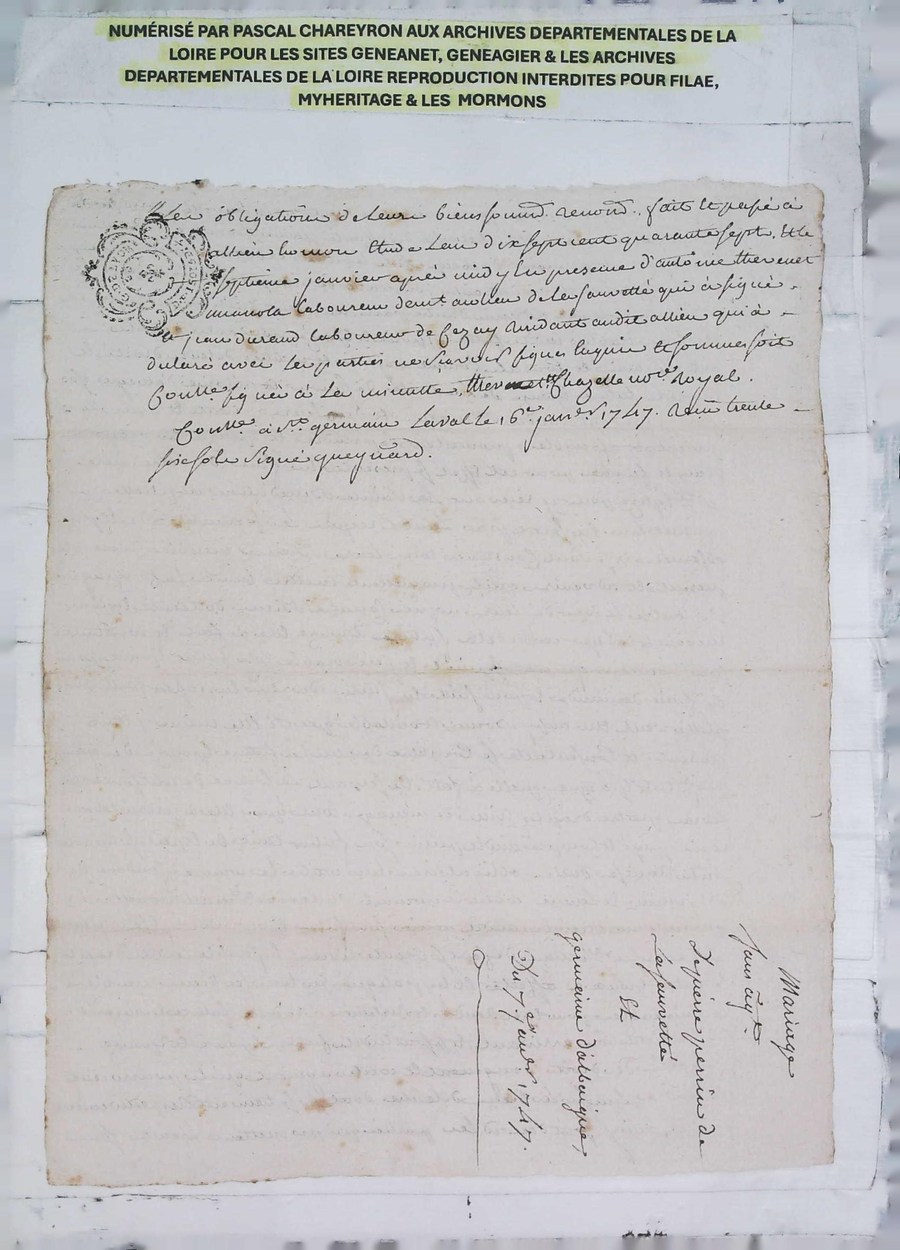 NUMÉRISÉ PAR PASCAL CHAREYRON AUX ARCHIVES DEPARTEMENTALES DE LA
LOIRE POUR LES SITES GENEANET, GENEAGIER & LES ARCHIVES
DEPARTEMENTALES DE LA LOIRE REPRODUCTION INTERDITES POUR FILAE,
MYHERITAGE & LES MORMONS
obligations de leurs biens soumis. renond. fait et passé à
allieu le mon etude l'an dix sept cent quarante sept, et le
septieme janvier après midy en presence d'antoine thevenet
laboureur du lieu de la sauvetté qui a signé
et jean durand laboureur de Cezay residant audit allieu qui a
declaré avec les parties ne scavoir signer enquis et sommes soit
Conllé signée à la minutte, thevenet et Chazelle no.re Royal.
Conllé. à St. germain Laval le 16e. janv.er 1747. Receu trente
six sols signé queynard.
Mariage
sans
de pierre perrin de
La sauvetté
Et
germaine d'albuigue
Du 7e janvier 1747.